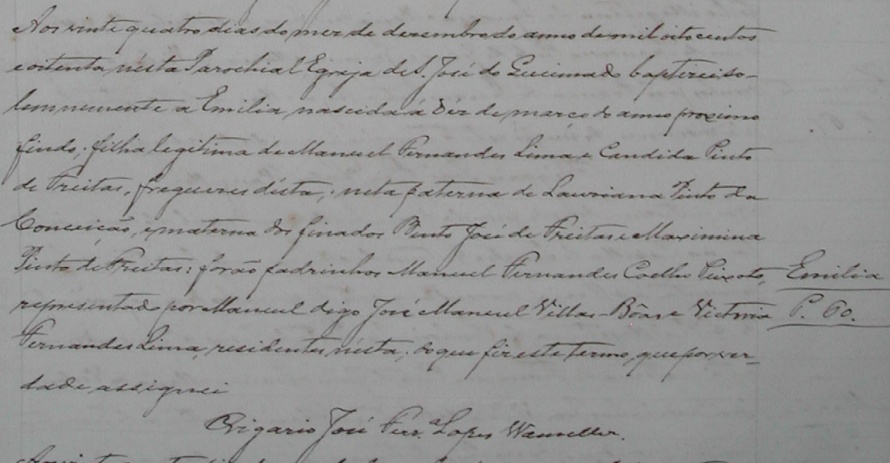 Aos vinte quatro dias do mez de dezembro do anno de mil oito centos
e oitenta nésta Parochial Egreja de S. José do Queimado baptizei so-
lemnemente a Emilia nascida á déz de março do anno proximo
findo; filha legitima de Manuel Fernandes Lima e Candida Pinto
de Freitas, freguezes désta; neta paterna de Lauriana Pinto da
Conceição, e materna dos finados Bento José de Freitas e Maximina
Pinto de Freitas: forão padrinhos Manuel Fernandes Coelho Peixoto,
Emilia
representado por Manuel digo José Manuel Villas-Bôas e Victoria
P. 60.
Fernandes Lima residentes nésta; do que fiz este termo, que por ver-
dade assignei
O Vigario José Ferr.ª Lopes